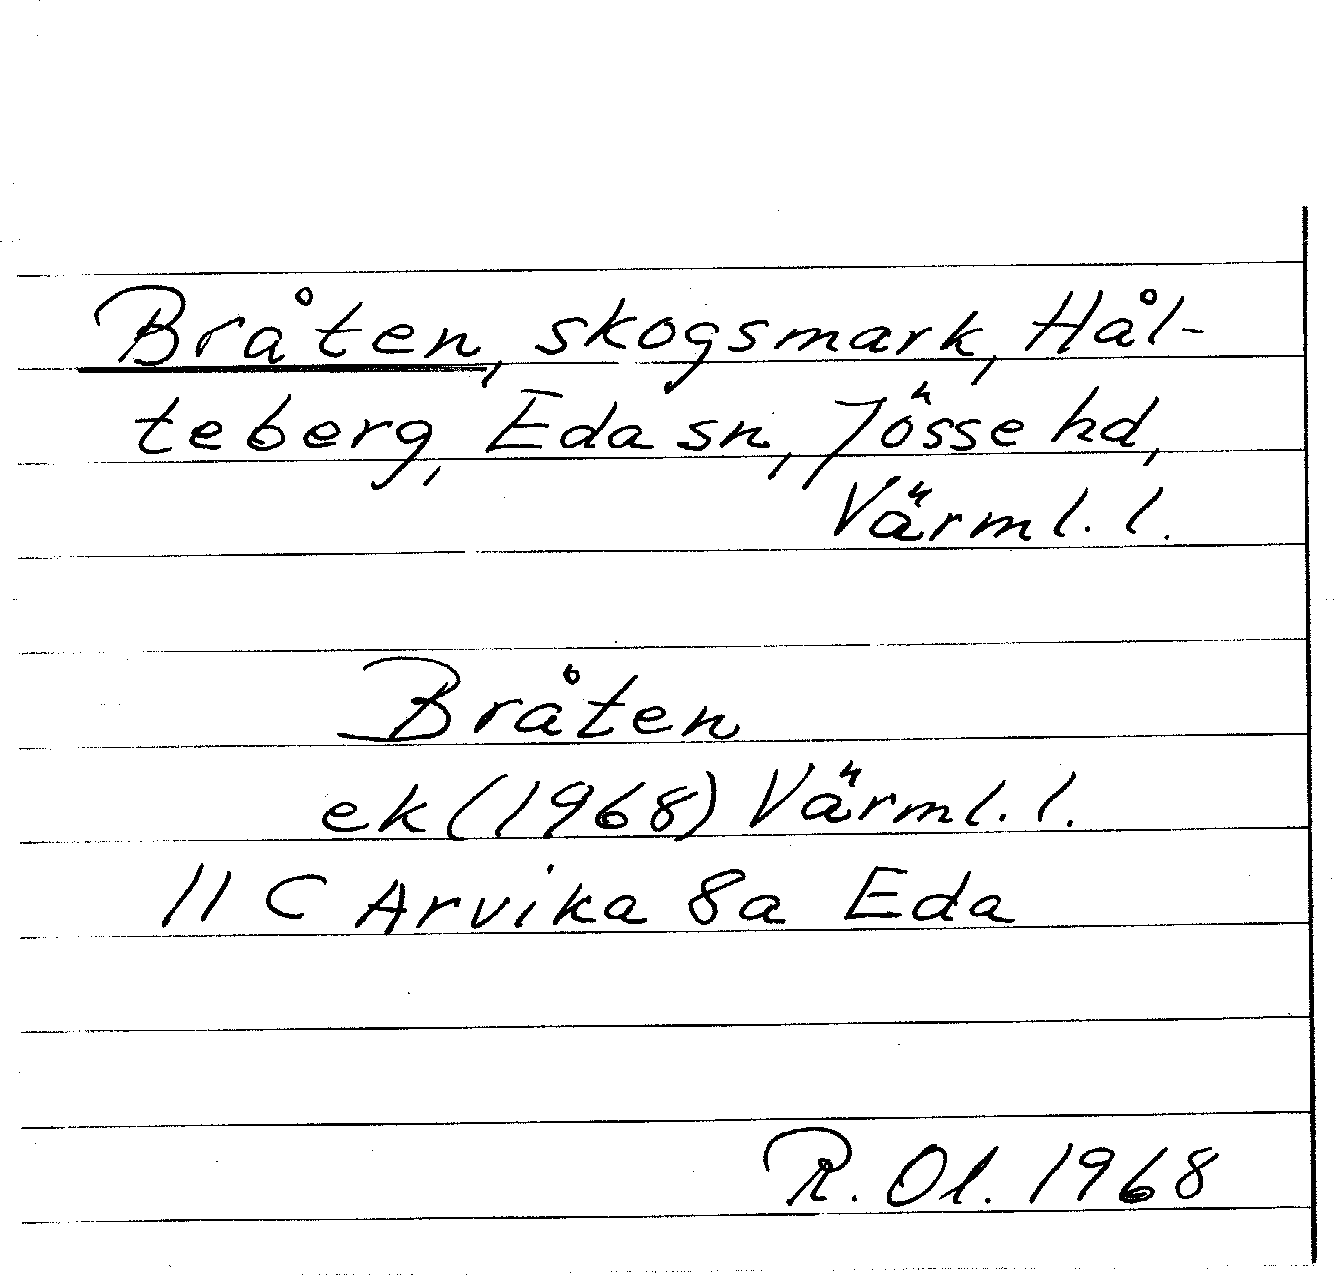 Bråten, skogsmark, Hål-
teberg, Eda sn, Jösse hd,
Värml. l.
Bråten
ek (1968) Värml. l.
11 C Arvika 8a Eda
R. Ol. 1968